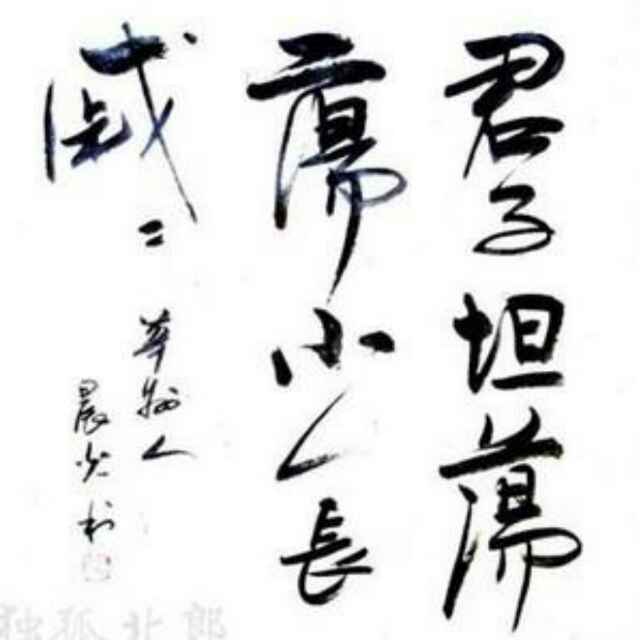 君子坦蕩
蕩小人長
戚〻
華人
晨光书
独孤北郎